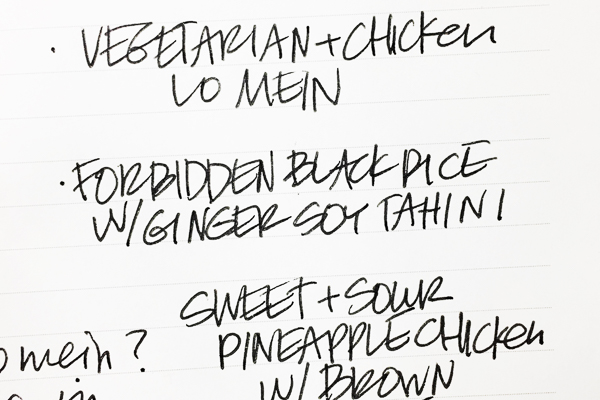 · VEGETARIAN + CHICKEN
LO MEIN
· FORBIDDEN BLACK RICE
W/ GINGER SOY TAHINI
SWEET + SOUR
PINEAPPLE CHICKEN
W/ BROWN
o mein?